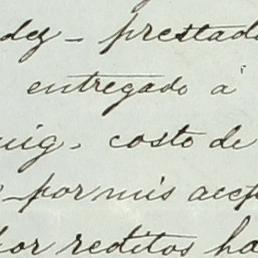 dez - prestado
entregado á
uig. costo de
- por mis acep
por reditos ha